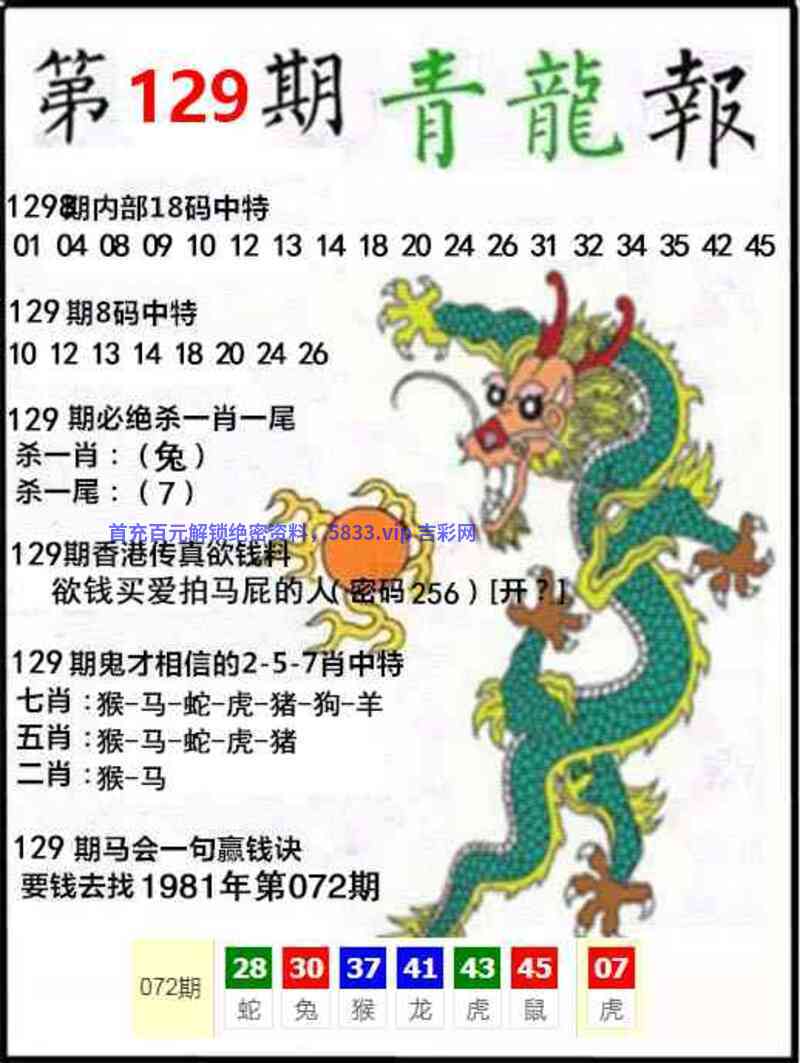 第129期青龍報
129期内部18码中特
01 04 08 09 10 12 13 14 18 20 24 26 31 32 34 35 42 45
129期8码中特
10 12 13 14 18 20 24 26
129 期必绝杀一肖一尾
杀一肖：（兔）
杀一尾：（7）
首充百元解锁绝密资料，5833.vip 吉彩网
129期香港传真欲钱料
欲钱买爱拍马屁的人(密码256）[开？]
129期鬼才相信的2-5-7肖中特
七肖：猴-马-蛇-虎-猪-狗-羊
五肖：猴-马-蛇-虎-猪
二肖：猴-马
129 期马会一句赢钱诀
要钱去找1981年第072期
072期 28 30 37 41 43 45 07
蛇 兔 猴 龙 虎 鼠 虎